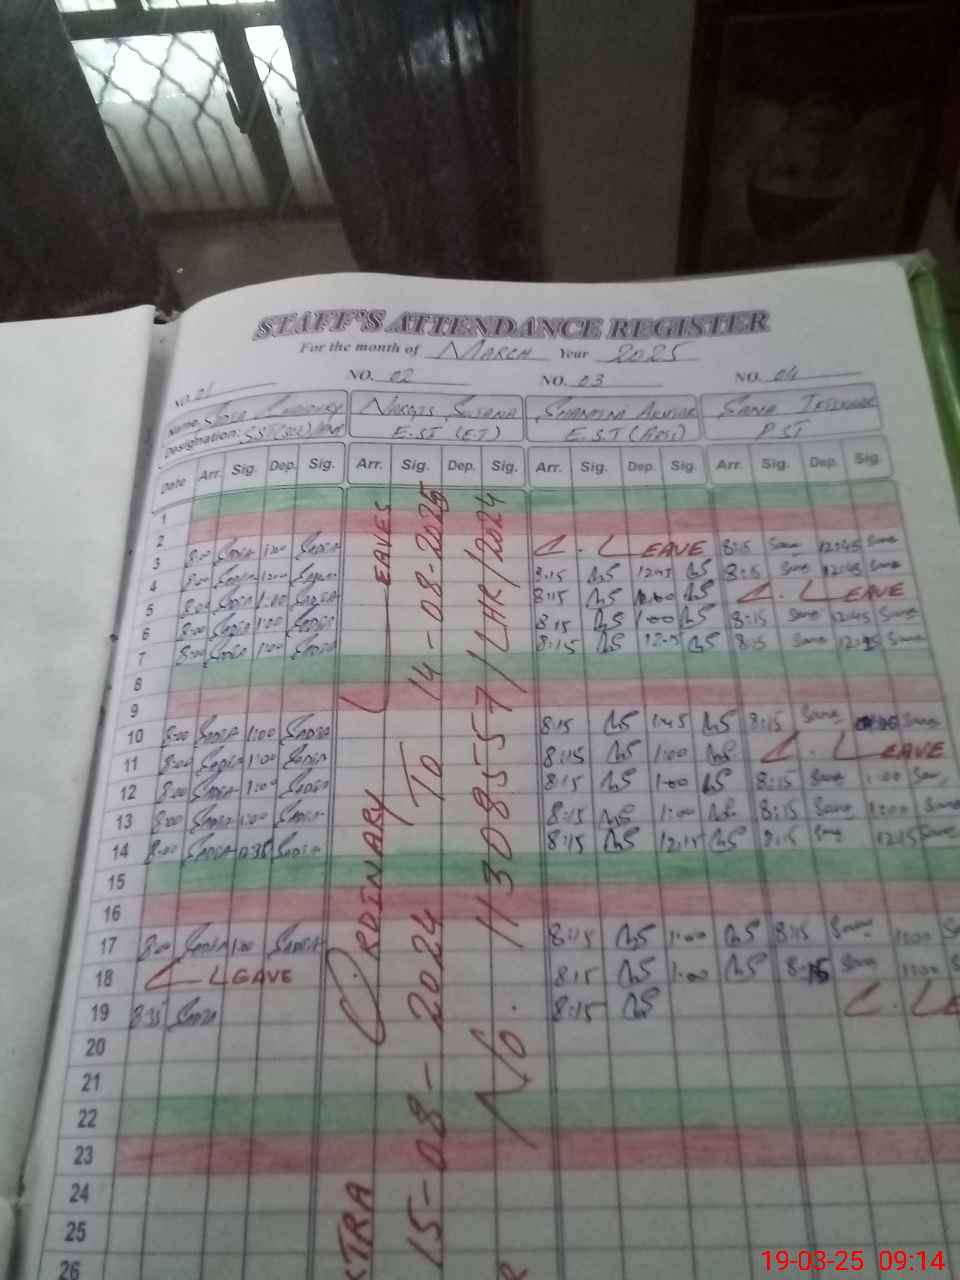 STAFF'S ATTENDANCE REGISTER
For the month of MARCH Year 2025
NO. 01 NO. 02 NO. 03 NO. 04
Name: NARGIS SULTANA SANA
Designation: E.ST (E.T) E.S.T P.ST
Date Arr. Sig. Dep. Sig. Arr. Sig. Dep. Sig. Arr. Sig. Dep. Sig. Arr. Sig. Dep. Sig.
1
2
3 8:00 SADIA 1:00 SADIA C. LEAVE 8:15 Sana 12:45 Sana
4 8:00 SADIA SADIA 8:15 12:45 8:15 Sana 12:45 Sana
5 8:00 SADIA 1:00 SADIA 8:15 C. LEAVE
6 8:00 SADIA 1:00 SADIA 8:15 1:00 8:15 Sana 12:45 Sana
7 8:00 SADIA 1:00 SADIA 8:15 Sana Sana
8
9
10 8:00 SADIA 1:00 SADIA 8:15 8:15 Sana Sana
11 8:00 SADIA 1:00 SADIA 8:15 1:00 C. LEAVE
12 8:00 SADIA 1:00 SADIA 8:15 1:00 8:15 Sana 1:00 Sana
13 8:00 SADIA 1:00 SADIA 8:15 1:00 8:15 Sana 1:00 Sana
14 8:00 SADIA 12:35 SADIA 8:15 12:15 8:15 Sana 12:15 Sana
15
16
17 8:00 SADIA 1:00 SADIA 8:15 1:00 8:15 Sana 1:00
18 C LEAVE 8:15 1:00 8:15 Sana 1:00
19 8:35 SADIA 8:15 C. LE
20
21
22
23
24
25
26
XTRA ORDINARY LEAVES
15-08-2024 To 14-08-2025
R No. 113085557/LHR/2024
19-03-25 09:14